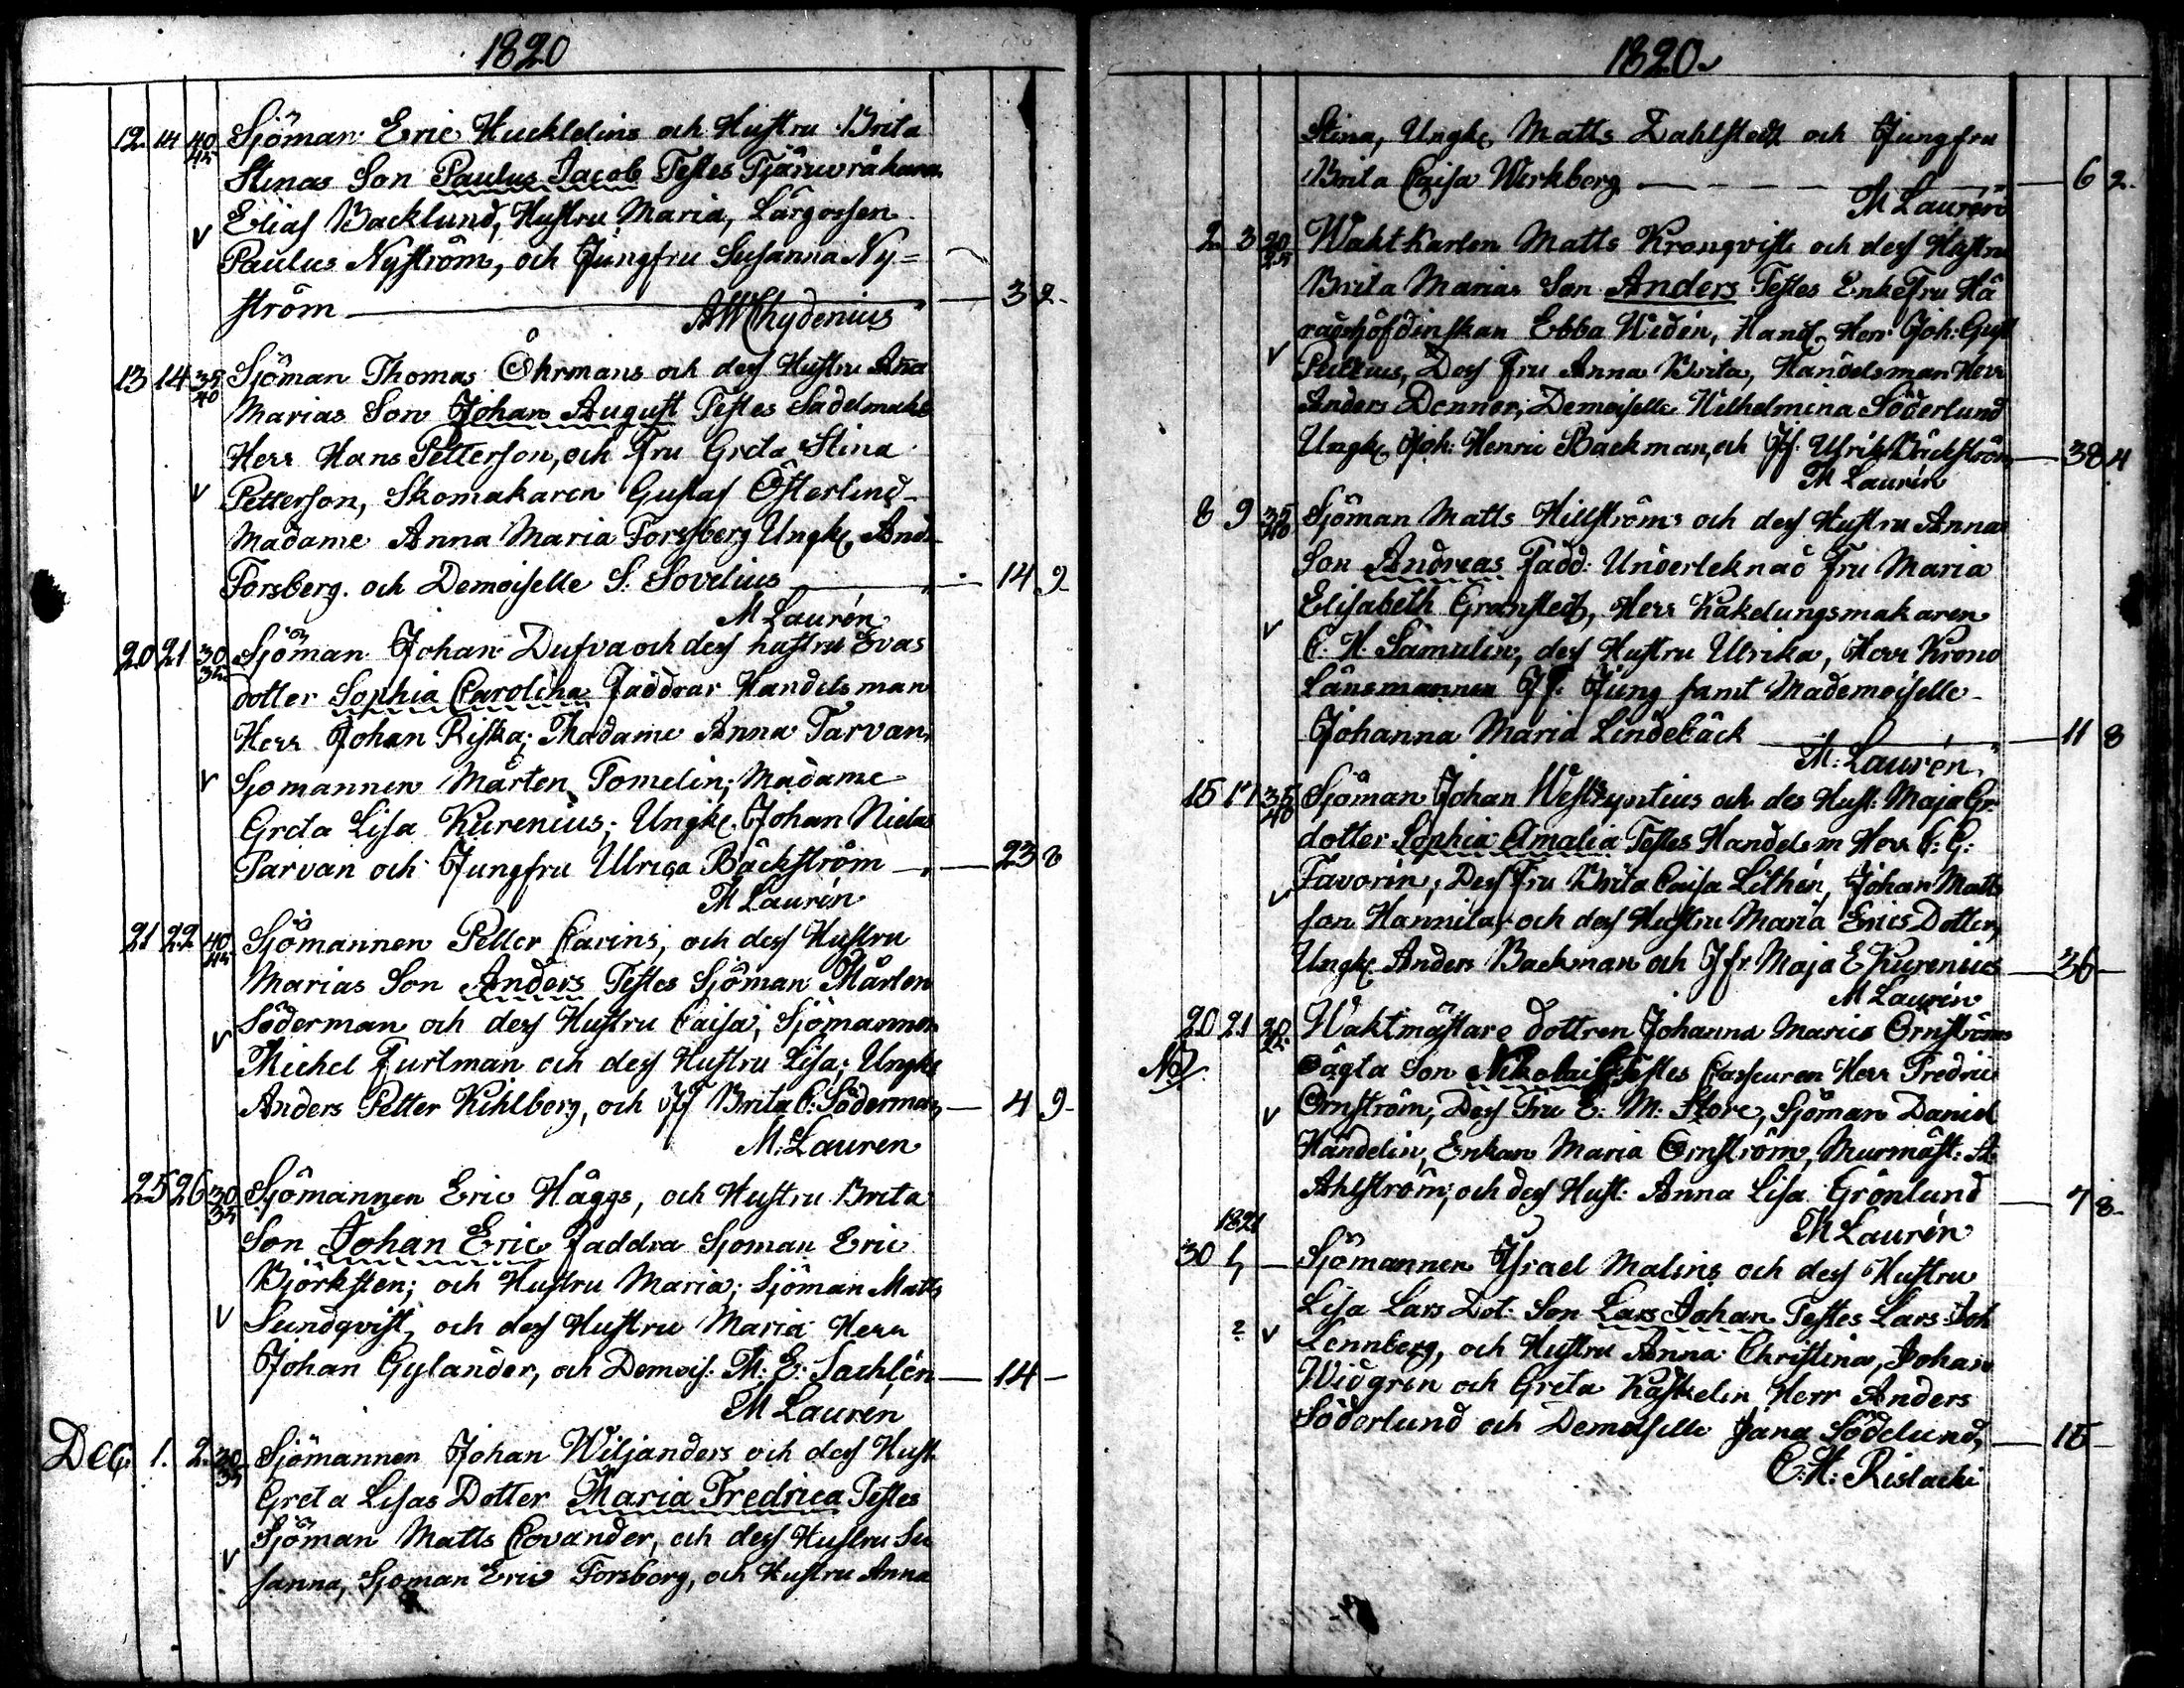 1820
12 14 40/45 Sjöman Eric Hucklelins och Hustru Brita
Stinas Son Paulus Jacob Testes Tjäruvräkaren
Elias Backlund, Hustru Maria, Lärgossen
Paulus Nyström, och Jungfru Susanna Ny=
ström — 3 2
AW Chydenius
13 14 35/40 Sjöman Thomas Öhrmans och dess Hustru Ana
Marias Son Johan August Testes Sadelmak
Herr Hans Petterson, och Fru Greta Stina
Petterson, Skomakaren Gustaf Österlind
Madame Anna Maria Forssberg Ungk. And.
Forsberg. och Demoiselle S. Sovelius — 14 9
M Laurén
20 21 30/35 Sjöman Johan Dufva och dess hustru Evas
dotter Sophia Carolina Faddrar Handelsman
Herr Johan Riska; Madame Anna Tarvan,
Sjömannen Mårten Tomelin; Madame
Greta Lisa Kurenius; Ungk. Johan Niclas
Parvan och Jungfru Ulrica Bäckström — 23 8
M Laurén
21 22 40/45 Sjömannen Petter Carins, och dess Hustru
Marias Son Anders Testes Sjöman Mårten
Söderman och dess Hustru Caisa, Sjömannen
Michel Furlman och dess Hustru Lisa; Ungk.
Anders Petter Kihlberg, och Jf Brita C. Söderman — 4 9
M: Lauren
25 26 30/35 Sjömannen Eric Häggs, och Hustru Brita
Son Johan Eric Faddra Sjoman Eric
Björksten; och Hustru Maria; Sjöman Matts
Sundqvist, och dess Hustru Maria Herr
Johan Gylander, och Demois. M: E. Sachlén — 14 —
M Laurén
Dec. 1. 2. 30/35 Sjömannen Johan Wiljanders och dess Hust.
Greta Lisas Dotter Maria Fredrica Testes
Sjöman Matts Covander, och dess Hustru Su
sanna, Sjoman Eric Forsberg, och Hustru Anna
1820
Stina, Ungk. Matts Dahlstedt och Jungfru
Brita Caisa Werkberg — 6 2
M Laurén
2 3 20/25 Waktkarlen Matts Kronqvists och dess Hustru
Brita Marias Son Anders Testes Enkefru Hä
radshöfdinskan Ebba Widén, Hand. Herr Joh: Gust
Dess Fru Anna Brita, Handelsman Herr
Anders Donner, Demoiselle Wilhelmina Söderlund
Ungk. Joh: Henric Backman, och Jf. Ulrik Bäckström — 38 4
M Laurén
8 9 35/40 Sjöman Matts Hillströms och dess Hustru Annas
Son Andreas Fadd: Underleknad Fru Maria
Elisabeth Granstedt, Herr Kakelungsmakaren
C. H. Samulin, dess Hustru Ulrika, Herr Krono
Länsmannen Jf. Jung samt Mademoiselle
Johanna Maria Lindebäck — 11 8
M: Laurén
15 17 35/40 Sjöman Johan Westzyntius och des Hust: Maja Gr.
dotter Sophia Amalia Testes Handelsm Herr C: G:
Favorin, Dess Fru Brita Caisa Lithén, Johan Matts
son Hannila, och dess Hustru Maria Erics Dotter,
Ungk. Anders Backman och Jfr. Maja E Kurenius — 36 —
M Laurén
20 21 20/25 Waktmästare dottren Johanna Maria Örnströms
NB. oägta Son Nikolai Testes Casseuren Herr Fredric
Ornström, Dess Fru E: M: Store, Sjöman Daniel
Händelin, Enkan Maria Ornström, Murmäst: A:
Ahlström, och dess Hust: Anna Lisa Grönlund — 7 8
M Laurén
1821
30 Sjömannen Israel Malins och dess Hustru
Lisa Lars Dot: Son Lars Johan Testes Lars Joh
Lennberg, och Hustru Anna Christina, Johan
Widgren och Greta Kastkelin Herr Anders
Söderlund och Demoiselle Jana Södelund, — 15 —
C: H: Rislachi